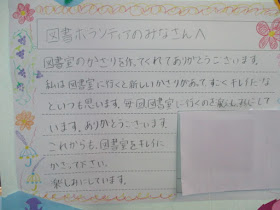 図書ボランティアのみなさんへ
図書室のかざりを作ってくれてありがとうございます。
私は図書室に行くと新しいかざりがあって、すごくキレイだな
といつも思います。毎回図書室に行くのを楽しみにして
います。ありがとうございます。
これからも、図書室をキレイに
かざって下さい。
楽しみにしています。